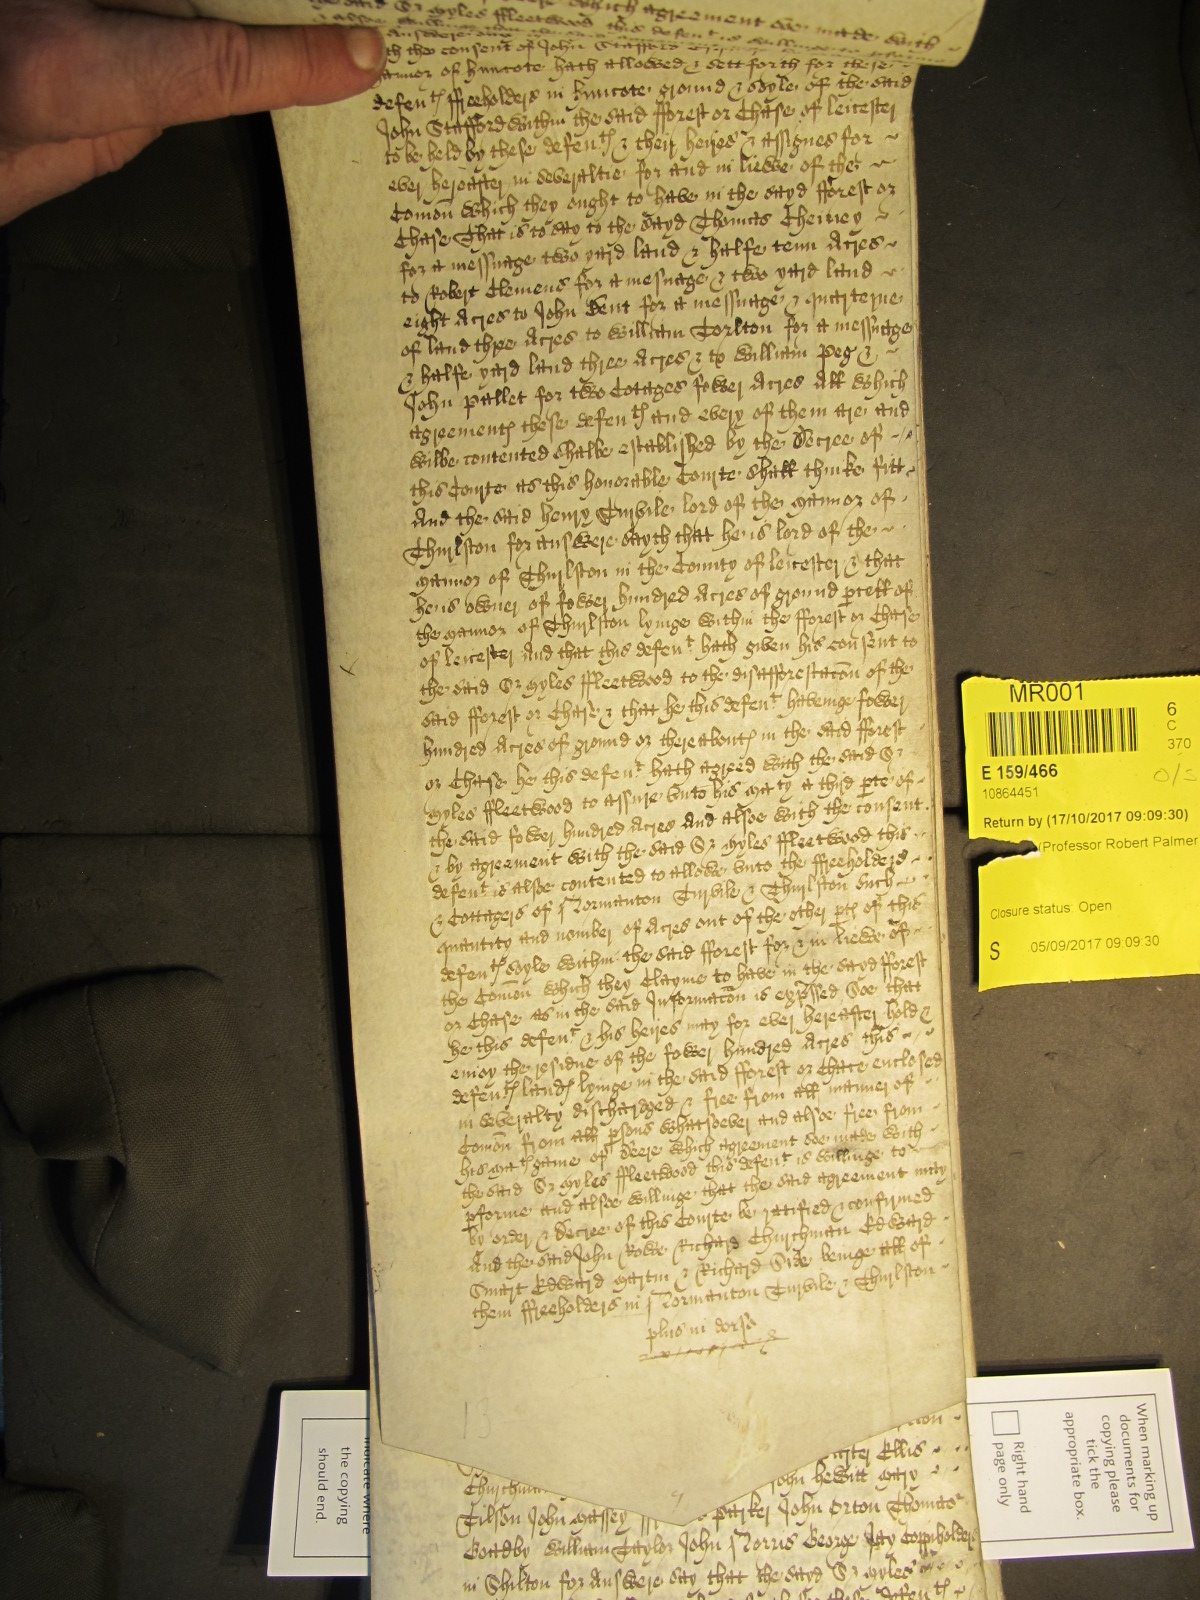 which agreement soe made with
the said Sr Myles Fleetwood this defent is willinge to
th the consent of John Stafford
mannor of Huncote hath allowed & sett forth for these
defents ffreeholders in Huncote ground & soyle of the said
John Stafford within the said fforest or Chase of Leicester
to be held by these defents & their heires & assignes for
ever hereafter in severaltie for and in liewe of the
Comon which they ought to have in the sayd fforest or
Chase That is to say to the sayd Thomas Cheiney
for a messuage two yard land & halfe tenn Acres
to Robert Clemens for a messuage & two yard land
eight Acres to John Dent for a messuage & quarterne
of land three Acres to William Torlton for a messuage
& halfe yard land three Acres & to William Peg &
John Pallet for two Cotages fower Acres All which
agreements these defents and every of them are and
wilbe contented shalbe established by the Decree of
this Courte as this honorable Courte shall thinke fitt
And the said Henry Turvile lord of the mannor of
Thurlston for answere sayth that he is lord of the
mannor of Thurlston in the County of Leicester & that
he is owner of fower hundred Acres of ground pcell of
the mannor of Thurlston lyinge within the fforest or Chase
of Leicester And that this defent hath given his consent to
the said Sr Myles ffleetwood to the disafforestacon of the
said fforest or Chase & that he this defent haveinge fower
hundred Acres of ground or thereabouts in the said fforest
or Chase he this defent hath agreed with the said Sr
Myles ffleetwood to assure unto his maty a third pte of
the said fower hundred Acres And alsoe with the consent
& by agreement with the said Sr Myles ffleetwood this
defent is alsoe contented to allowe unto the ffreeholders
& Cottagers of Normanton Turvile & Thurlston such
quantity and nomber of Acres out of the other pts of this
defents soyle within the said fforest for & in liewe of
the Comon which they Clayme to have in the sayd fforest
or Chase as in the said Informacon is expssed Soe that
he this defent & his heires may for ever hereafter hold &
enjoy the residue of the fower hundred Acres this
defents lands lyinge in the said fforest or Chace enclosed
in severalty discharged & free from all manner of
Comon from all psons whatsoever and alsoe free from
his mats game of deere which agreement soe made with
the said Sr Myles ffleetwood this defent is willinge to
pforme and alsoe willinge that the said agreement may
by order & Decree of this Courte be ratified & confirmed
And the said John Rowe Richard Churchman Edward
Smart Edward Martin & Richard Side beinge all of
them ffreeholders in Normanton Turvile & Thurlston
plus in dorso
13
Ellis
Churchman John Hewitt Mary
Tilson John Massey Parker John Orton Thomas
Goadby William Taylor John Norris George Coppiholders
in Shilton for Answere say that the sayd Sr Myles
these defents
MR001
6
C
370
E 159/466
O/S
10864451
Return by (17/10/2017 09:09:30)
(Professor Robert Palmer
Closure status: Open
S 05/09/2017 09:09:30
indicate where
the copying
should end.
When marking up
documents for
copying please
tick the
appropriate box.
Right hand
page only